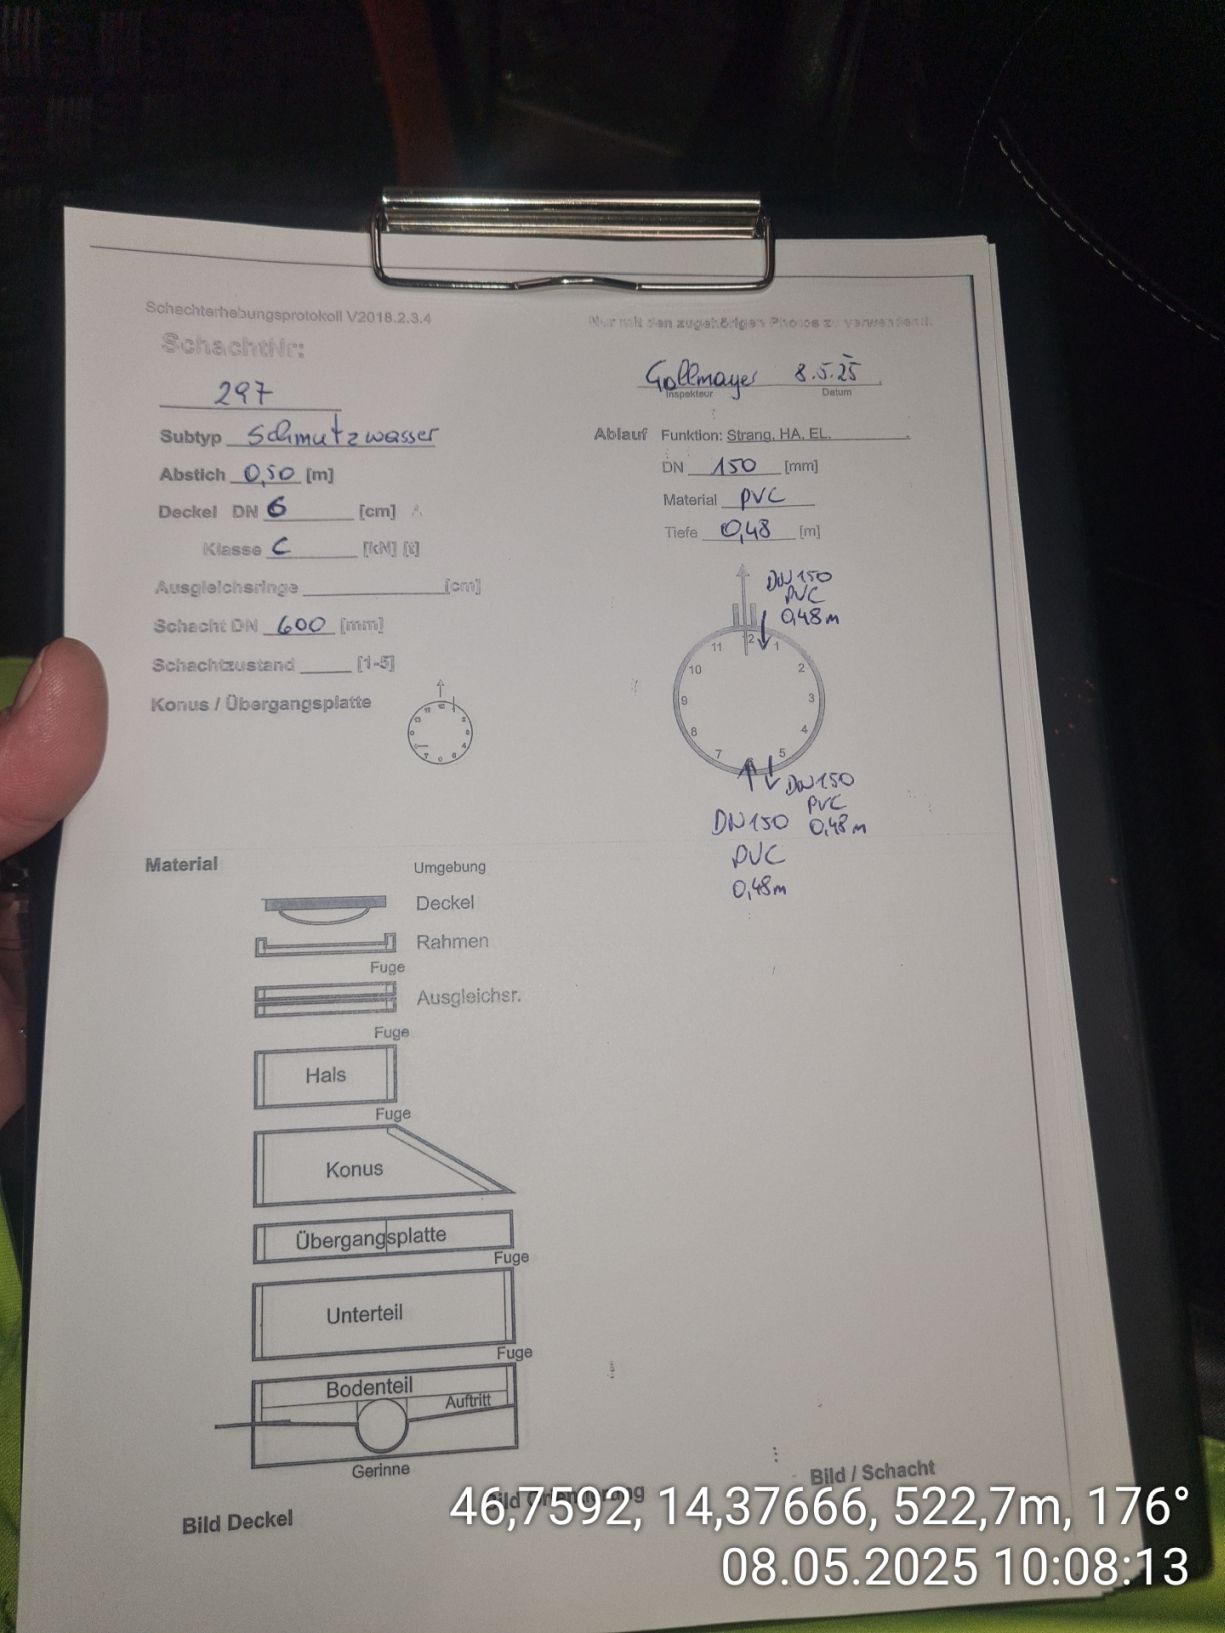 Schachterhebungsprotokoll V2018.2.3.4
Nur mit den zugehörigen Photos zu verwenden!!
SchachtNr:
297
Gollmayer 8.5.25
Inspekteur Datum
Subtyp Schmutzwasser
Ablauf Funktion: Strang, HA, EL.
Abstich 0,50 [m]
DN 150 [mm]
Deckel DN 6 [cm]
Material PVC
Klasse C [kN] [t]
Tiefe 0,48 [m]
Ausgleichsringe [cm]
Schacht DN 600 [mm]
Schachtzustand [1-5]
Konus / Übergangsplatte
DN150
PVC
0,48m
11 12 1
10 2
9 3
8 4
7 5
DN150
PVC
0,48m
DN150
PVC
0,48m
Material
Umgebung
Deckel
Rahmen
Fuge
Ausgleichsr.
Fuge
Hals
Fuge
Konus
Übergangsplatte
Fuge
Unterteil
Fuge
Bodenteil
Auftritt
Gerinne
Bild Deckel
Bild Orientierung
Bild / Schacht
46,7592, 14,37666, 522,7m, 176°
08.05.2025 10:08:13